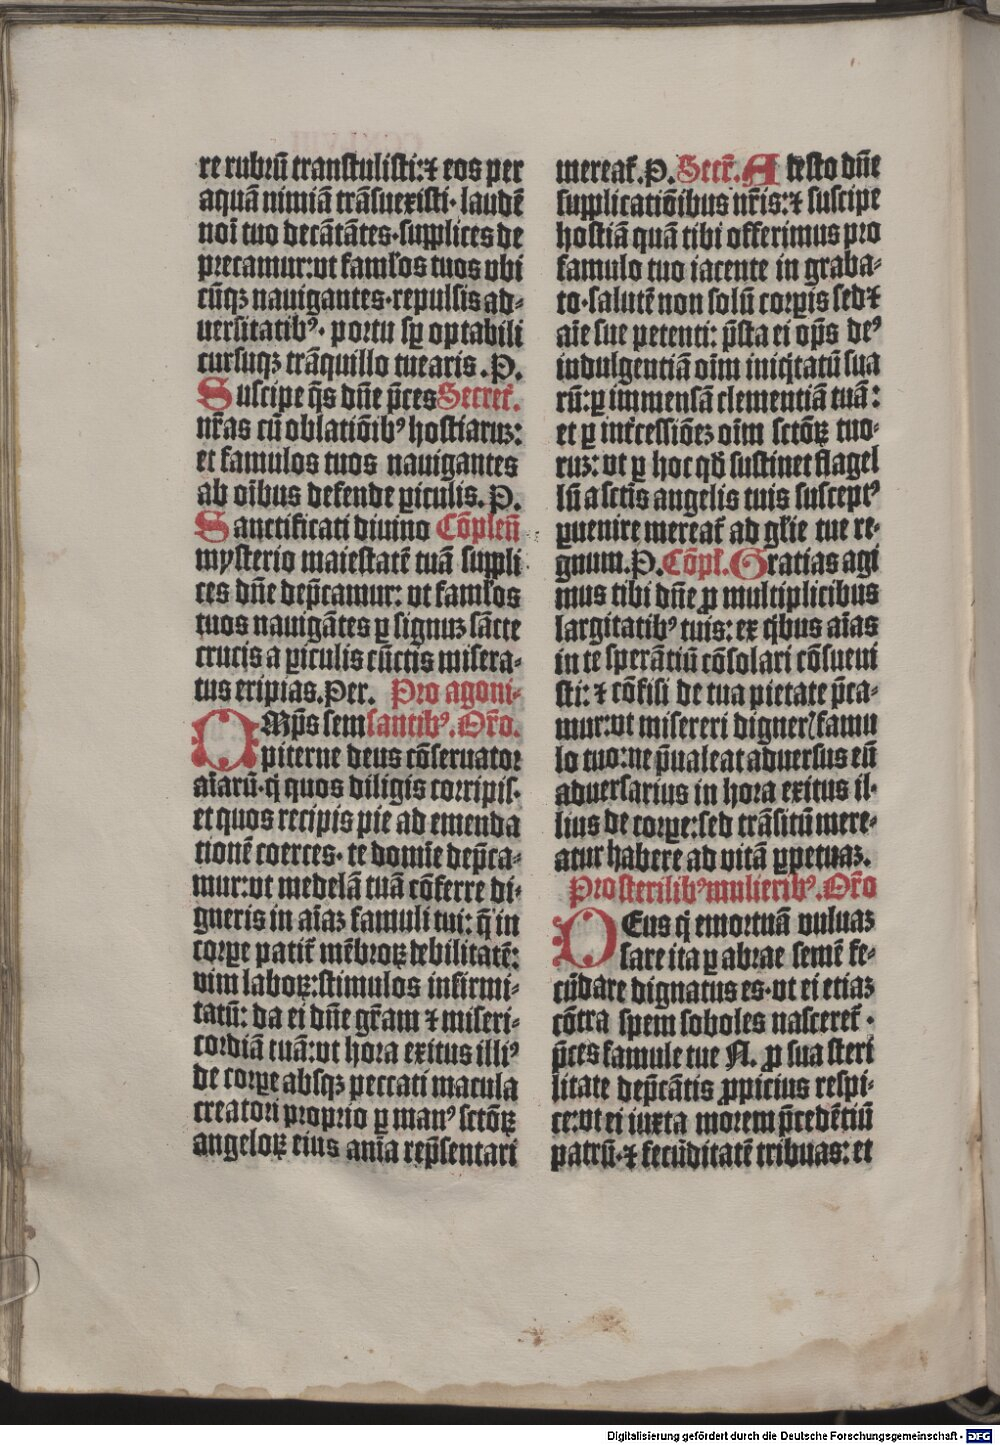 re rubrū transtulisti: ⁊ eos per
aquā nimiā trāsuexisti· laudē
noı̄ tuo decātātes· supplices de
precamur: vt famlos tuos vbi
cūqꝫ nauigantes· repulsis ad-
uersitatibꝰ· portu sꝑ optabili
cursuqꝫ trāquillo tuearis .P.
Suscipe q̄s dn̄e p̄ces Secret̄.
nr̄as cū oblatiōibꝰ hostiaruꝫ:
et famulos tuos nauigantes
ab oı̄bus defende ꝑiculis. P.
Sanctificati diuino Cōplen̄
mysterio maiestatē tuā suppli
ces dn̄e dep̄camur: vt famlos
tuos nauigātes ꝑ signuꝫ sācte
crucis a ꝑiculis cūctis misera-
tus eripias. Per. Pro agoni-
OMp̄s sem santibꝰ. Or̄o.
piterne deus cōseruator
aı̄arū· q̄ quos diligis corripis·
et quos recipis pie ad emenda
tionē coerces· te domı̄e dep̄ca-
mur: vt medelā tuā cōferre di-
gneris in aı̄aꝫ famuli tui: q̄ in
corꝑe patit̄ mēbroꝝ debilitatē:
vim laboꝝ: stimulos infirmi-
tatū: da ei dn̄e gr̄am ⁊ miseri-
cordiā tuā: vt hora exitus illiꝰ
de corꝑe absqꝫ peccati macula
creatori proprio ꝑ manꝰ sctōꝝ
angeloꝝ eius anı̄a rep̄sentari
mereat̄. P. Secr̄. Adesto dn̄e
supplicatiōibus nr̄is: ⁊ suscipe
hostiā quā tibi offerimus pro
famulo tuo iacente in graba-
to· salutē non solū corꝑis sed ⁊
aı̄e sue petenti: p̄sta ei op̄s deꝰ
indulgentiā oı̄m iniq̇tatū sua
rū: ꝑ immensā clementiā tuā:
et ꝑ int̄cessiōeꝫ oı̄m sctōꝝ tuo-
ruꝫ: vt ꝑ hoc qd̄ sustinet flagel
lū a sctı̄s angelis tuis susceptꝰ
ꝑuenire mereat̄ ad gl̄ie tue re-
gnum. P. Cōpl̄. Gratias agi
mus tibi dn̄e ꝓ multiplicibus
largitatibꝰ tuis: ex q̇bus aı̄as
in te sperātiū cōsolari cōsueui
sti: ⁊ cōfisi de tua pietate p̄ca-
mur: vt misereri digneris famu
lo tuo: ne p̄ualeat aduersus eū
aduersarius in hora exitus il-
lius de corꝑe: sed trāsitū mere-
atur habere ad vitā ꝑpetuaꝫ.
Pro sterilibꝰ mulieribꝰ. Or̄o
DEus q̇ emortuā vuluaꝫ
sare ita ꝑ abrae semē fe-
cūdare dignatus es· vt ei etiaꝫ
cōtra spem soboles nasceret̄·
p̄ces famule tue N. ꝓ sua steri
litate dep̄cātis ꝓpicius respi-
ce: vt ei iuxta morem p̄cedētiū
patrū· ⁊ fecūditatē tribuas: et